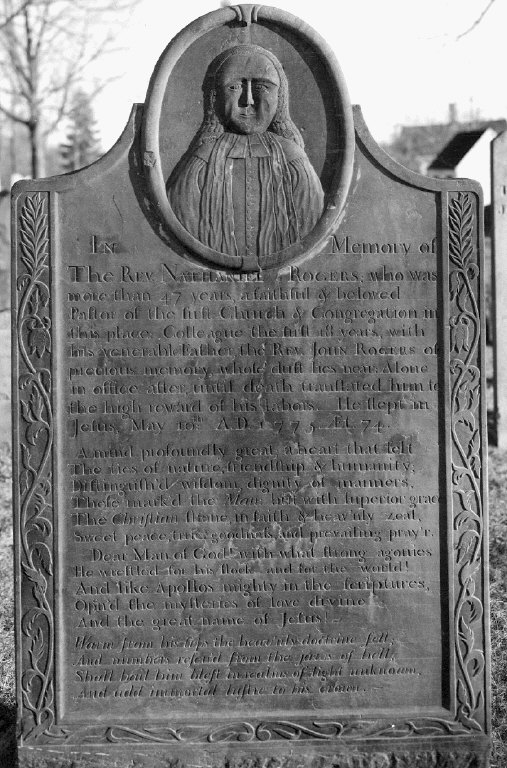 In Memory of
The Rev. Nathaniel Rogers, who was
more than 47 years, a faithful & beloved
Pastor of the first Church & Congregation in
this place; Colleague the first 18 years, with
his venerable Father, the Rev. John Rogers of
precious memory, whose dust lies near. Alone
in office after, until death translated him to
the high reward of his labors. He slept in
Jesus, May 10th A.D. 1775. Æt. 74.
A mind profoundly great, a heart that felt
The ties of nature, friendship & humanity,
Distinguish'd wisdom, dignity of manners,
These mark'd the Man: but with superior grace
The Christian shone, in faith & heav'nly zeal,
Sweet peace, true goodness, and prevailing pray'r.
Dear Man of God! with what strong agonies
He wrestled for his flock and for the world!
And like Apollos mighty in the scriptures,
Open'd the mysteries of love divine
And the great name of Jesus!
Warm from his lips the heav'nly doctrine fell;
And numbers rescu'd from the jaws of hell,
Shall hail him blest in realms of light unknown,
And add immortal lustre to his crown.